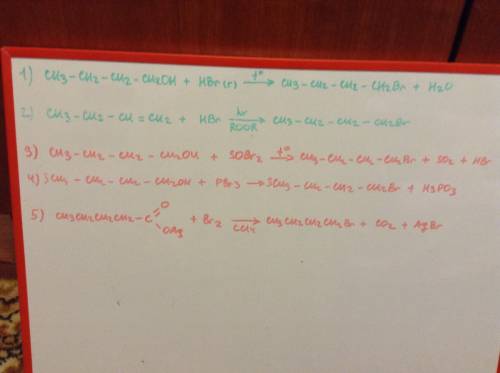 1) CH3-CH2-CH2-CH2OH + HBr(г) t°→ CH3-CH2-CH2-CH2Br + H2O
2) CH3-CH2-CH=CH2 + HBr hν→ROOR CH3-CH2-CH2-CH2Br
3) CH3-CH2-CH2-CH2OH + SOBr2 t°→ CH3-CH2-CH2-CH2Br + SO2 + HBr
4) 3CH3-CH2-CH2-CH2OH + PBr3 → 3CH3-CH2-CH2-CH2Br + H3PO3
5) CH3CH2CH2CH2-C=O OAg + Br2 →CCl4 CH3CH2CH2CH2Br + CO2 + AgBr